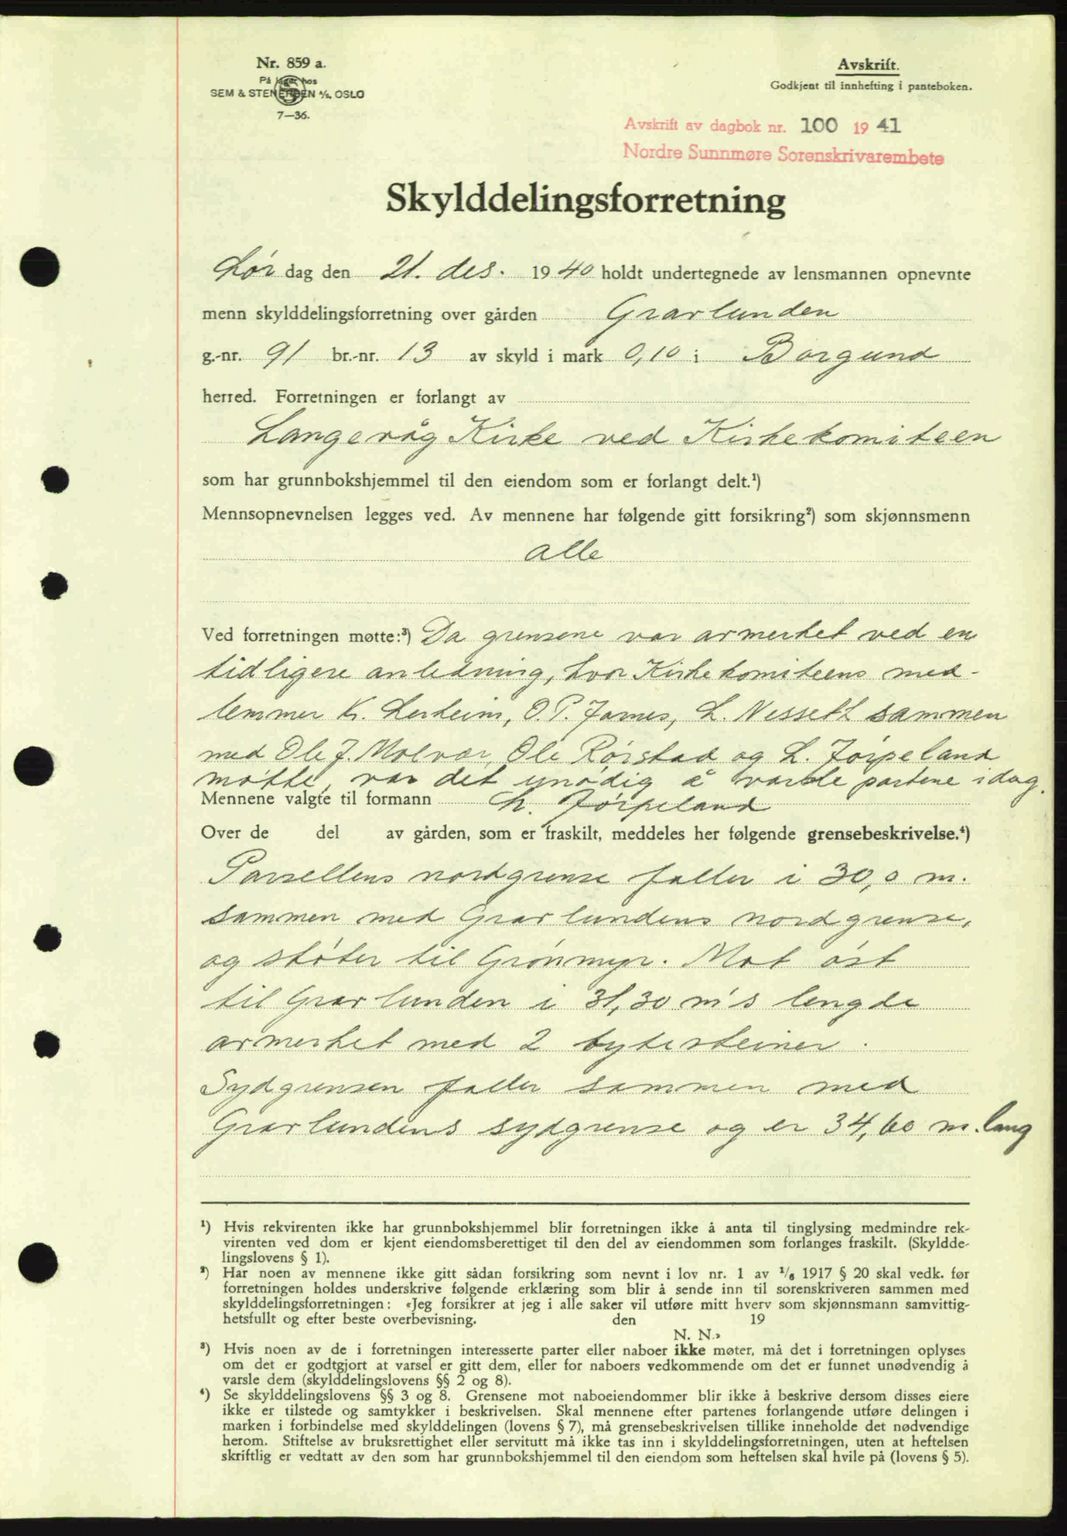 Nr. 859 a.
På lager hos
SEM & STENERSEN A/S, OSLO
7—36.
Avskrift.
Godkjent til innhefting i panteboken.
Avskrift av dagbok nr. 100 19 41
Nordre Sunnmøre Sorenskrivarembete
Skylddelingsforretning
Lør dag den 21. des. 19 40 holdt undertegnede av lensmannen opnevnte
menn skylddelingsforretning over gården Grarlunden
g.-nr. 91 br.-nr. 13 av skyld i mark 0,10 i Borgund
herred. Forretningen er forlangt av
Langevåg Kirke ved Kirkekomiteen
som har grunnbokshjemmel til den eiendom som er forlangt delt.¹)
Mennsopnevnelsen legges ved. Av mennene har følgende gitt forsikring²) som skjønnsmenn
alle
Ved forretningen møtte:³) Da grensene var avmerket ved en
tidligere anledning, hvor Kirkekomiteens med-
lemmer K. Lerheim, O. P. James, L. Nessett sammen
med Ole J. Molvær, Ole Rørstad og L. Jørpeland
møtte, var det unødig å varsle partene i dag.
Mennene valgte til formann L. Jørpeland
Over de del av gården, som er fraskilt, meddeles her følgende grensebeskrivelse.⁴)
Parsellens nordgrense faller i 30,0 m.
sammen med Grarlundens nordgrense,
og støter til Grønmyr. Mot øst
til Grarlunden i 31,30 m's lengde
avmerket med 2 bytesteiner.
Sydgrensen faller sammen med
Grarlundens sydgrense og er 34,60 m. lang
¹) Hvis rekvirenten ikke har grunnbokshjemmel blir forretningen ikke å anta til tinglysing medmindre rek-
virenten ved dom er kjent eiendomsberettiget til den del av eiendommen som forlanges fraskilt. (Skyldde-
lingslovens § 1).
²) Har noen av mennene ikke gitt sådan forsikring som nevnt i lov nr. 1 av 1/6 1917 § 20 skal vedk. før
forretningen holdes underskrive følgende erklæring som blir å sende inn til sorenskriveren sammen med
skylddelingsforretningen: «Jeg forsikrer at jeg i alle saker vil utføre mitt hverv som skjønnsmann samvittig-
hetsfullt og efter beste overbevisning. den 19
N. N.»
³) Hvis noen av de i forretningen interesserte parter eller naboer ikke møter, må det i forretningen oplyses
om det er godtgjort at varsel er gitt dem, eller for naboers vedkommende om det er funnet unødvendig å
varsle dem (skylddelingslovens §§ 2 og 8).
⁴) Se skylddelingslovens §§ 3 og 8. Grensene mot naboeiendommer blir ikke å beskrive dersom disses eiere
ikke er tilstede og samtykker i beskrivelsen. Skal mennene efter partenes forlangende utføre delingen i
marken i forbindelse med skylddelingen (lovens § 7), må grensebeskrivelsen tillike inneholde det nødvendige
herom. Stiftelse av bruksrettighet eller servitutt må ikke tas inn i skylddelingsforretningen, uten at heftelsen
skriftlig er vedtatt av den som har grunnbokshjemmel til den eiendom som heftelsen skal hvile på (lovens § 5).